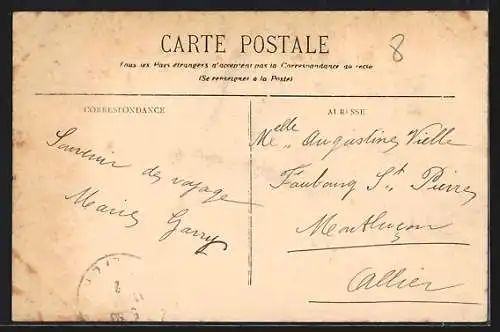 CARTE POSTALE
8
Tous les Pays étrangers n'acceptent pas la Correspondance au recto
(Se renseigner à la Poste)
CORRESPONDANCE
Souvenir de voyage
Marie Garry
ADRESSE
Melle Augustine Vielle
Faubourg St Pierre
Montluçon
Allier